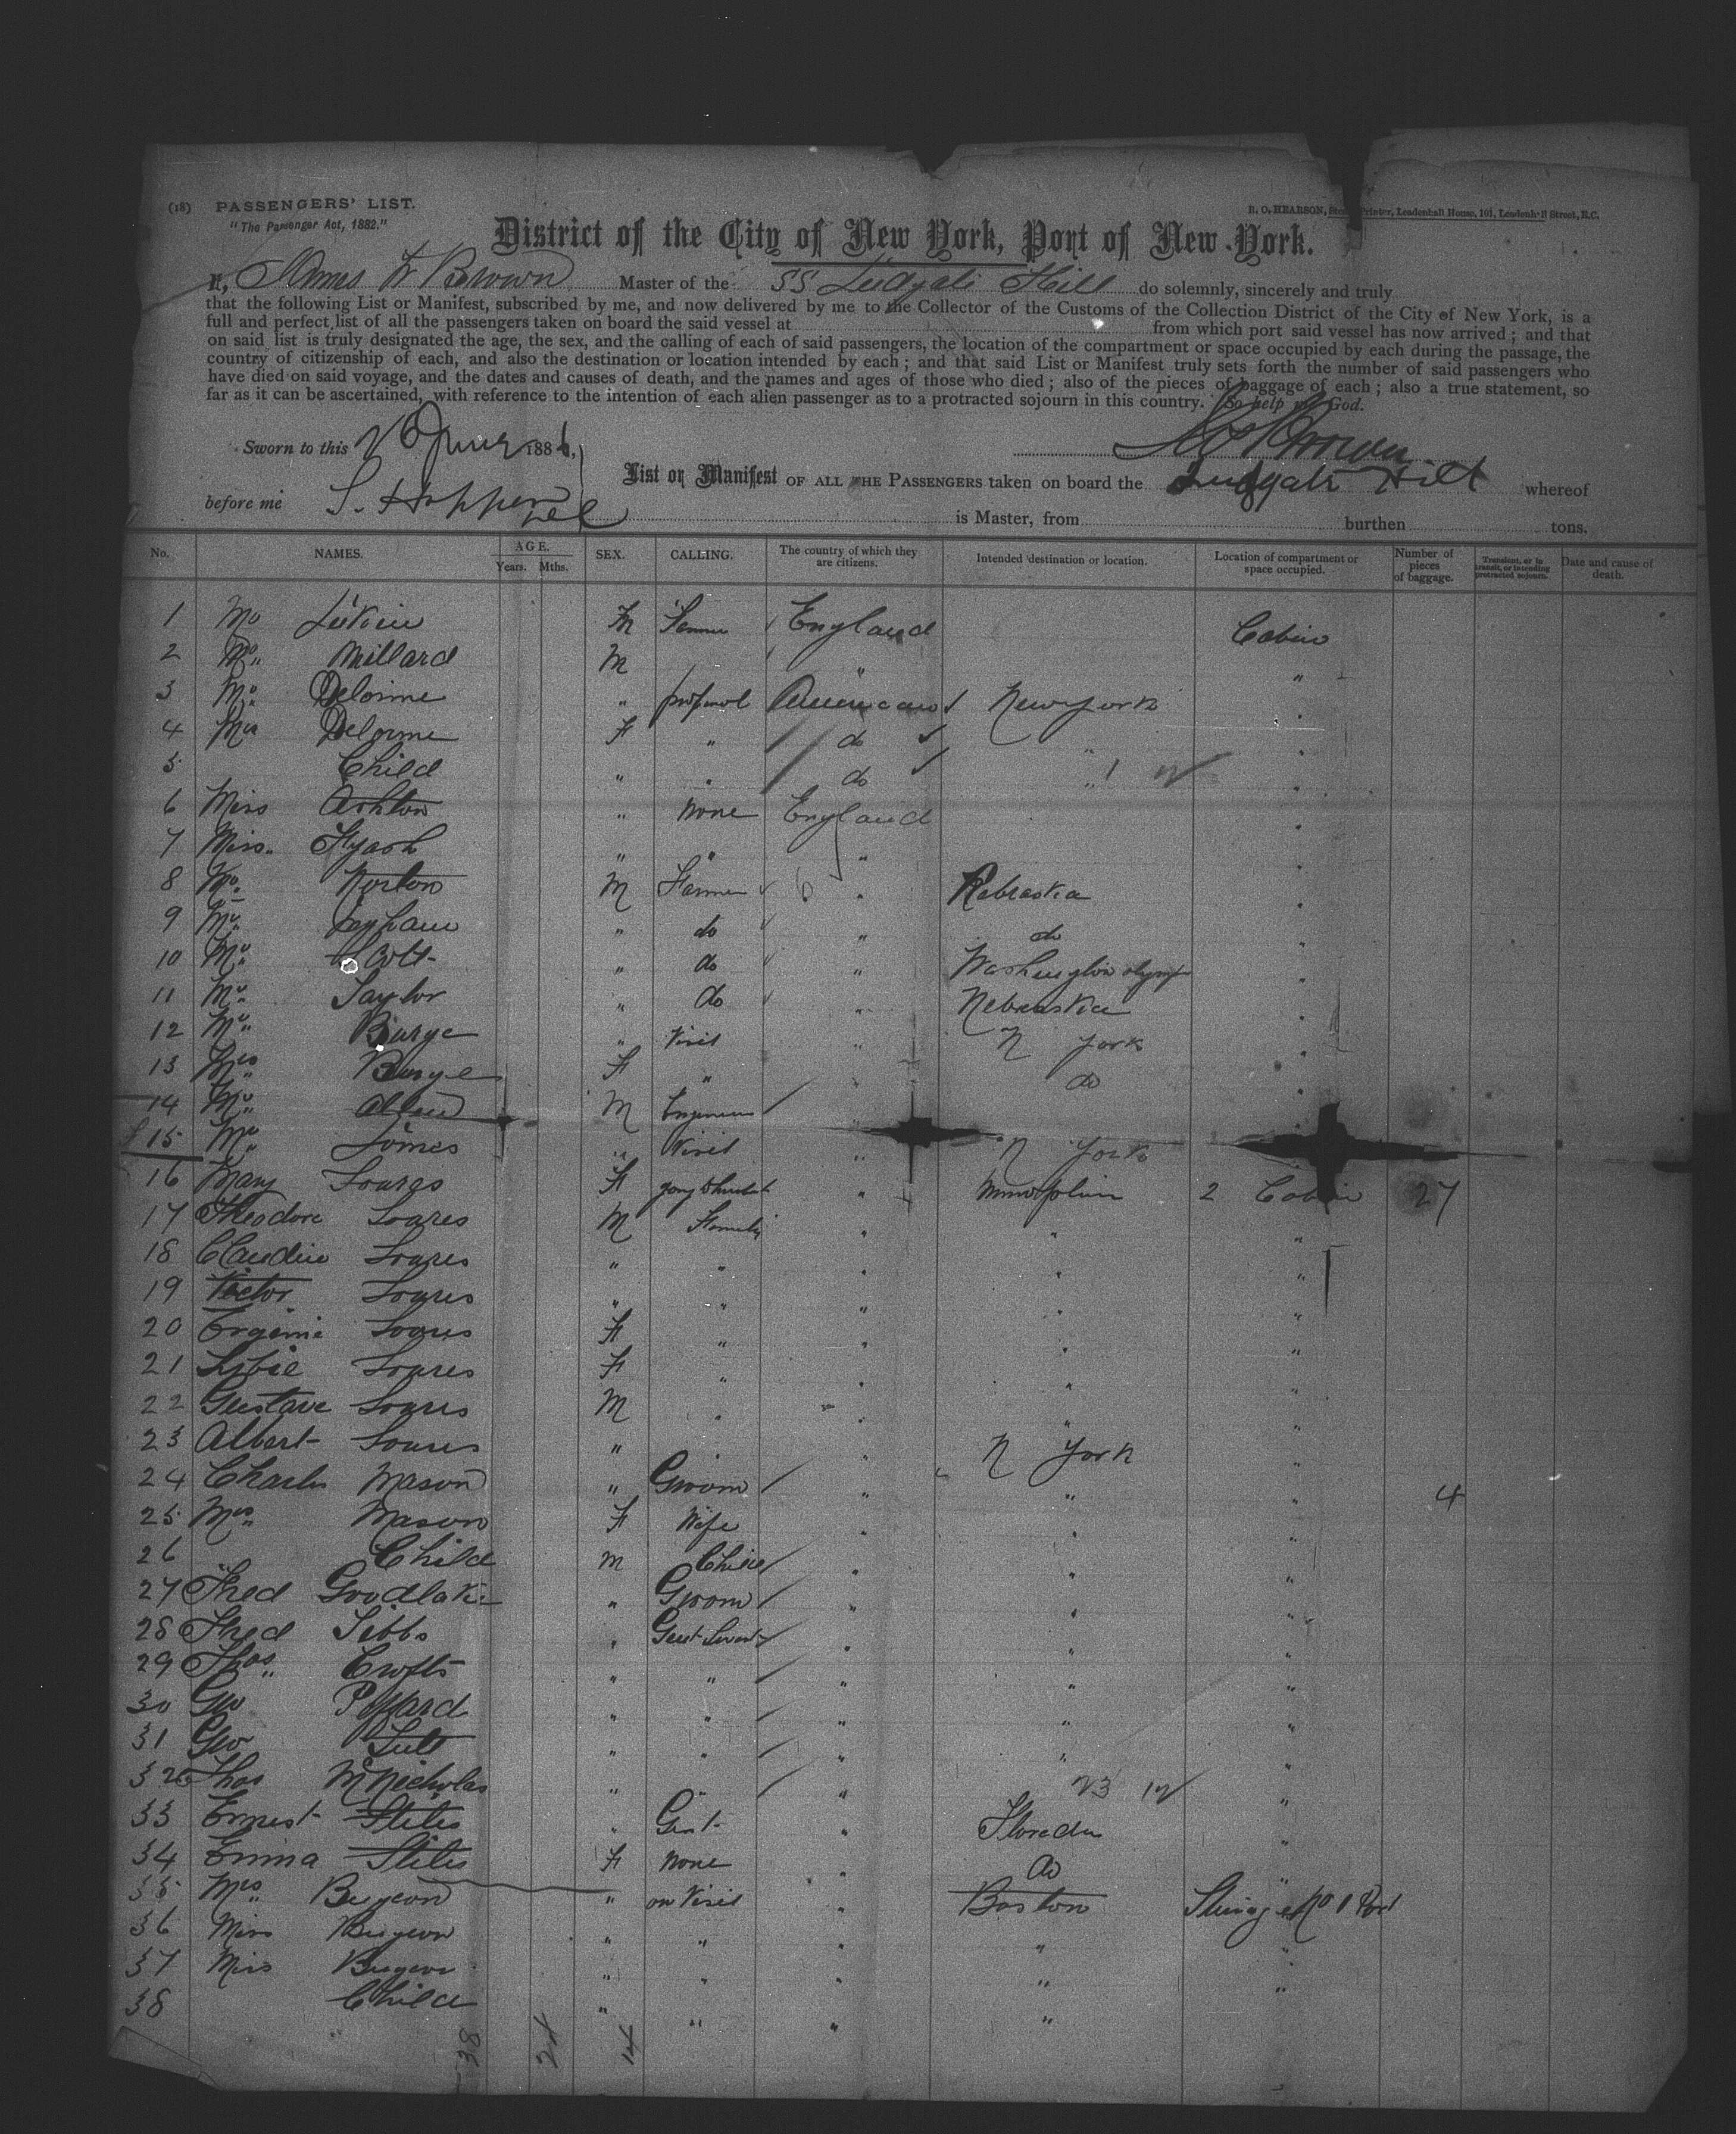 (18) PASSENGERS' LIST.
"The Passenger Act, 1882."
R. O. HEARSON, Printer, Leadenhall House, 101, Leadenhall Street, E.C.
District of the City of New York, Port of New York.
I, James W Brown Master of the SS Ludgate Hill do solemnly, sincerely and truly
that the following List or Manifest, subscribed by me, and now delivered by me to the Collector of the Customs of the Collection District of the City of New York, is a
full and perfect list of all the passengers taken on board the said vessel at from which port said vessel has now arrived; and that
on said list is truly designated the age, the sex, and the calling of each of said passengers, the location of the compartment or space occupied by each during the passage, the
country of citizenship of each, and also the destination or location intended by each; and that said List or Manifest truly sets forth the number of said passengers who
have died on said voyage, and the dates and causes of death, and the names and ages of those who died; also of the pieces of baggage of each; also a true statement, so
far as it can be ascertained, with reference to the intention of each alien passenger as to a protracted sojourn in this country. So help me God.
Sworn to this 26 June 1886, Brown
List or Manifest OF ALL THE PASSENGERS taken on board the Ludgate Hill whereof
before me S. is Master, from burthen tons.
No. NAMES. AGE. Years. Mths. SEX. CALLING. The country of which they are citizens. Intended destination or location. Location of compartment or space occupied. Number of pieces of baggage. Transient, or in transit, or intending protracted sojourn. Date and cause of death.
1 Mr M England Cabin
2 Mr Millard M " "
3 Mr Delorme " American New York "
4 Mrs Delorme F " do " "
5 Child " " do " "
6 Miss Ashton " None England "
7 Miss " " " "
8 Mr Norton M Farmer " Nebraska "
9 Mr " do " do "
10 Mr " do " Washington "
11 Mr Taylor " do " Nebraska "
12 Mr Burge " Visit " N York "
13 Mrs Burge F " " do "
14 Mr Allen M Engineer "
15 Mr " Visit " N York
16 Mary Soares F " 2 Cabin 27
17 Theodore Soares M Family " " "
18 Soares " " " " "
19 Victor Soares " " " "
20 Eugenie Soares F " " " "
21 Soares F " " " "
22 Gustave Soares M " " " "
23 Albert Soares " " N York "
24 Charles Mason " Groom " " " 4
25 Mrs Mason F Wife " " "
26 Child M Child " "
27 Fred Goodlake " Groom " " "
28 Fred Tibbs " " "
29 Thos Crofts " " " "
30 Geo " " " " "
31 Geo " " " " "
32 Thos McNicholas " " " "
33 Ernest Stiles " Gent " Florida "
34 Emma Stiles F None " do "
35 Mrs " on Visit " Boston Steerage No 1 Port
36 Miss " " " " "
37 Miss " " " " "
38 Child " " " "
38 24 14